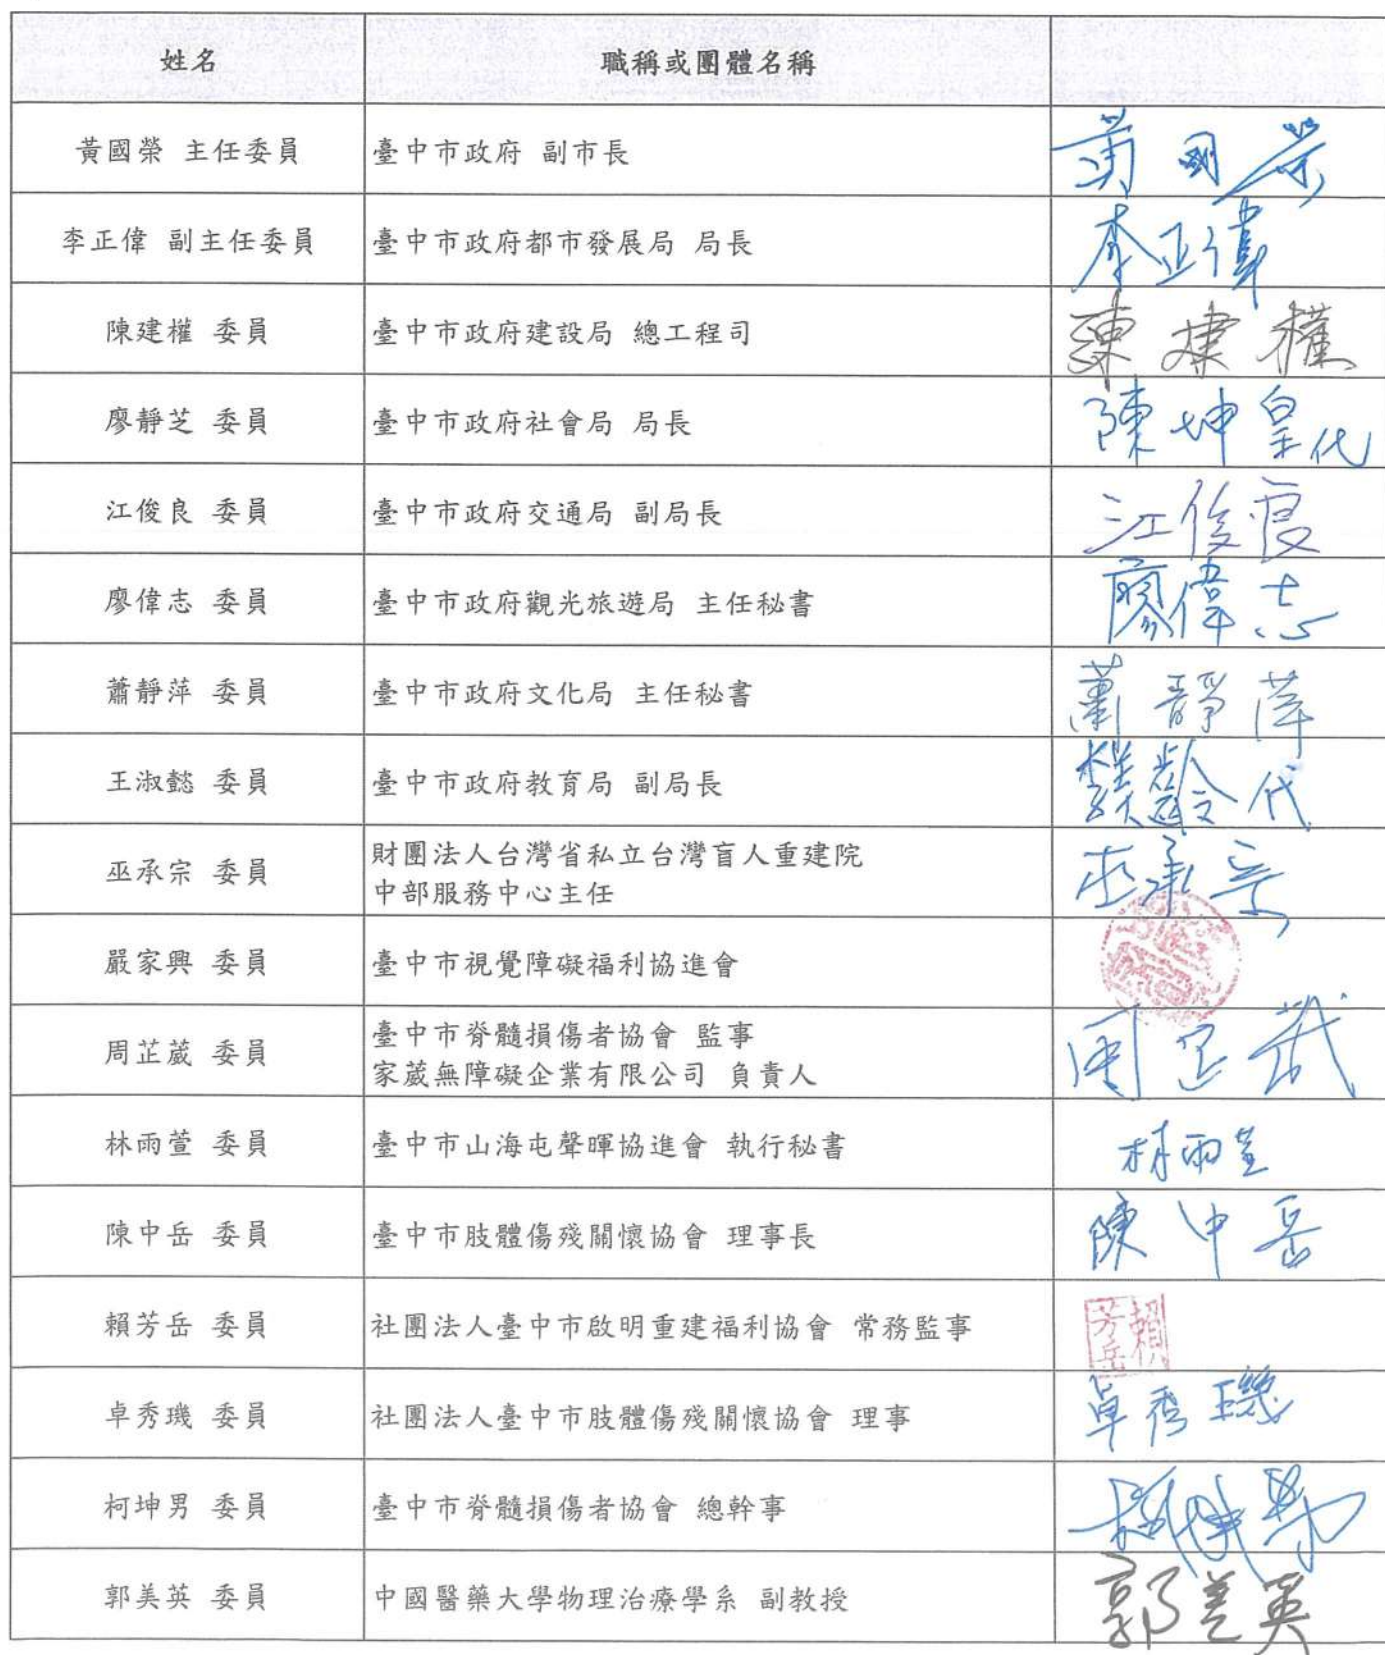 姓名 職稱或團體名稱
黃國榮 主任委員 臺中市政府 副市長 黃國榮
李正偉 副主任委員 臺中市政府都市發展局 局長 李正偉
陳建權 委員 臺中市政府建設局 總工程司 陳建權
廖靜芝 委員 臺中市政府社會局 局長 陳坤皇代
江俊良 委員 臺中市政府交通局 副局長 江俊良
廖偉志 委員 臺中市政府觀光旅遊局 主任秘書 廖偉志
蕭靜萍 委員 臺中市政府文化局 主任秘書 蕭靜萍
王淑懿 委員 臺中市政府教育局 副局長 代
巫承宗 委員 財團法人台灣省私立台灣盲人重建院 巫承宗
中部服務中心主任
嚴家興 委員 臺中市視覺障礙福利協進會
周芷葳 委員 臺中市脊髓損傷者協會 監事 周芷葳
家葳無障礙企業有限公司 負責人
林雨萱 委員 臺中市山海屯聲暉協進會 執行秘書 林雨萱
陳中岳 委員 臺中市肢體傷殘關懷協會 理事長 陳中岳
賴芳岳 委員 社團法人臺中市啟明重建福利協會 常務監事 賴芳岳
卓秀璣 委員 社團法人臺中市肢體傷殘關懷協會 理事 卓秀璣
柯坤男 委員 臺中市脊髓損傷者協會 總幹事
郭美英 委員 中國醫藥大學物理治療學系 副教授 郭美英